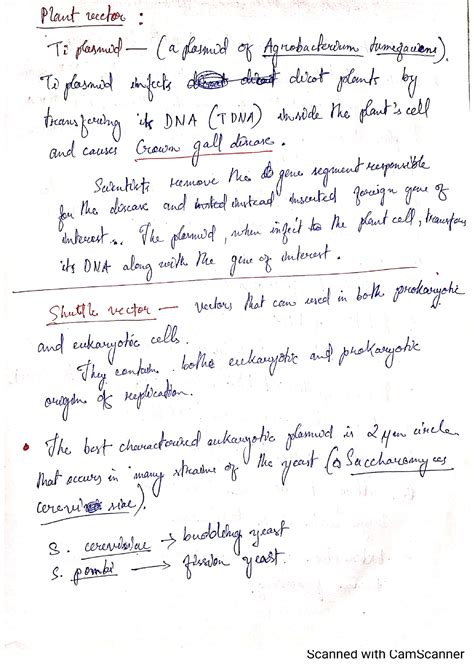 Plant vector :
Ti plasmid — (a plasmid of Agrobacterium tumefaciens).
Ti plasmid infects dicot plants by
transfering its DNA (TDNA) inside the plant's cell
and causes Crown gall disease.
Scientists remove the gene segment responsible
for the disease and instead inserted foreign gene of
interest. The plasmid, when infect to the plant cell, transfers
its DNA along with the gene of interest.
Shuttle vector — vectors that can used in both prokaryotic
and eukaryotic cells.
They contain both eukaryotic and prokaryotic
origin of replication.
• The best characterized eukaryotic plasmid is 2 μm circle
that occurs in many strains of the yeast (Saccharomyces
cerevisiae).
S. cerevisiae → budding yeast
S. pombe → fission yeast.
Scanned with CamScanner